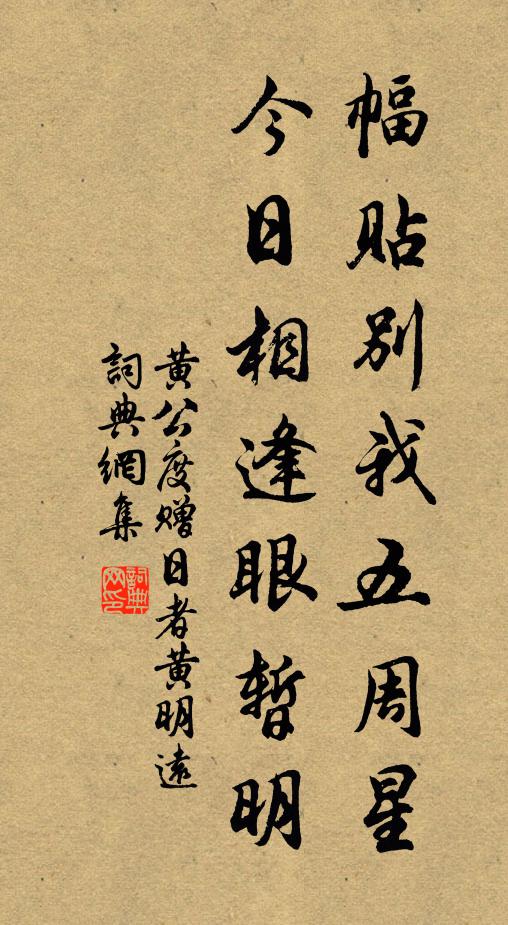 幅貼別我五周星
今日相逢眼暫明
黃公度贈日者黃明遠
詞典網集
詞典
网印